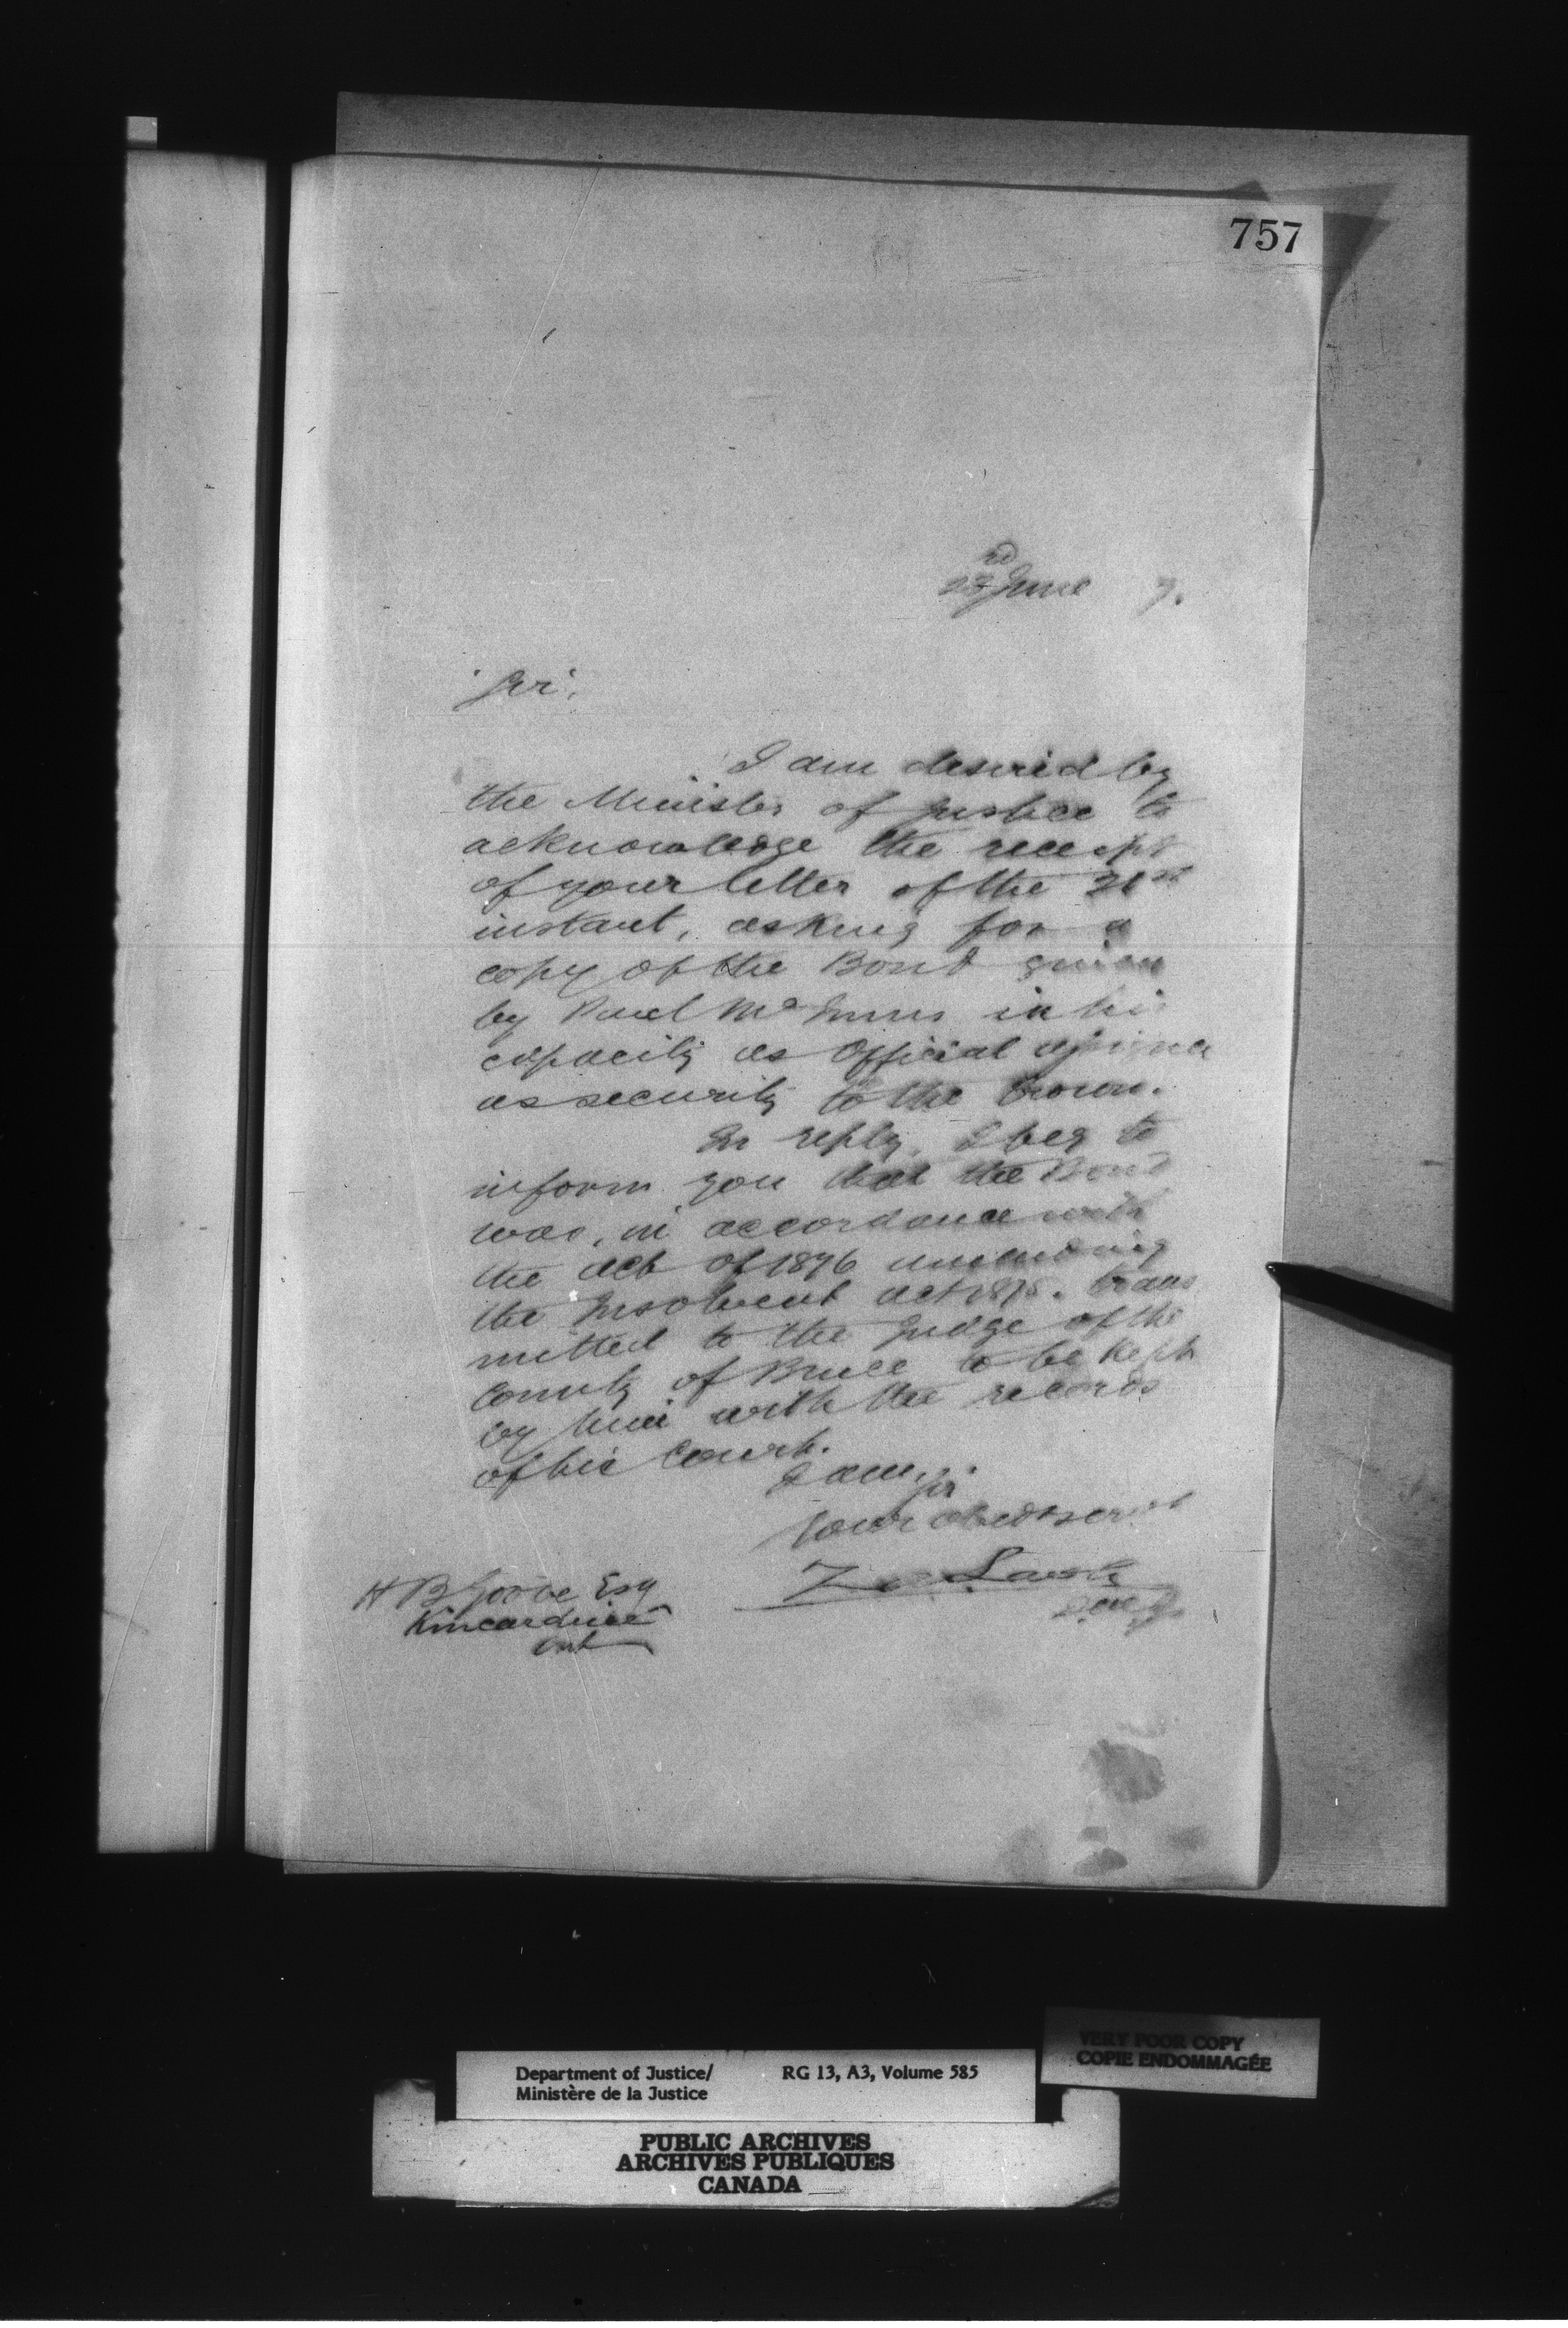 757
23rd June 7.
Sir,
I am desired by
the Minister of Justice to
acknowledge the receipt
of your letter of the 21st
instant, asking for a
copy of the Bond given
by Paul McInnes in his
capacity as Official assignee
as security to the Crown.
In reply, I beg to
inform you that the Bond
was, in accordance with
the act of 1876 amending
the Insolvent act 1875. trans
mitted to the Judge of the
County of Bruce to be kept
by him with the records
of his Court.
I am, Sir
Your obedt servt
Z A Lash
D. M. J.
H B Esq
Kincardine
Ont
VERY POOR COPY
COPIE ENDOMMAGÉE
Department of Justice/ RG 13, A3, Volume 585
Ministère de la Justice
PUBLIC ARCHIVES
ARCHIVES PUBLIQUES
CANADA